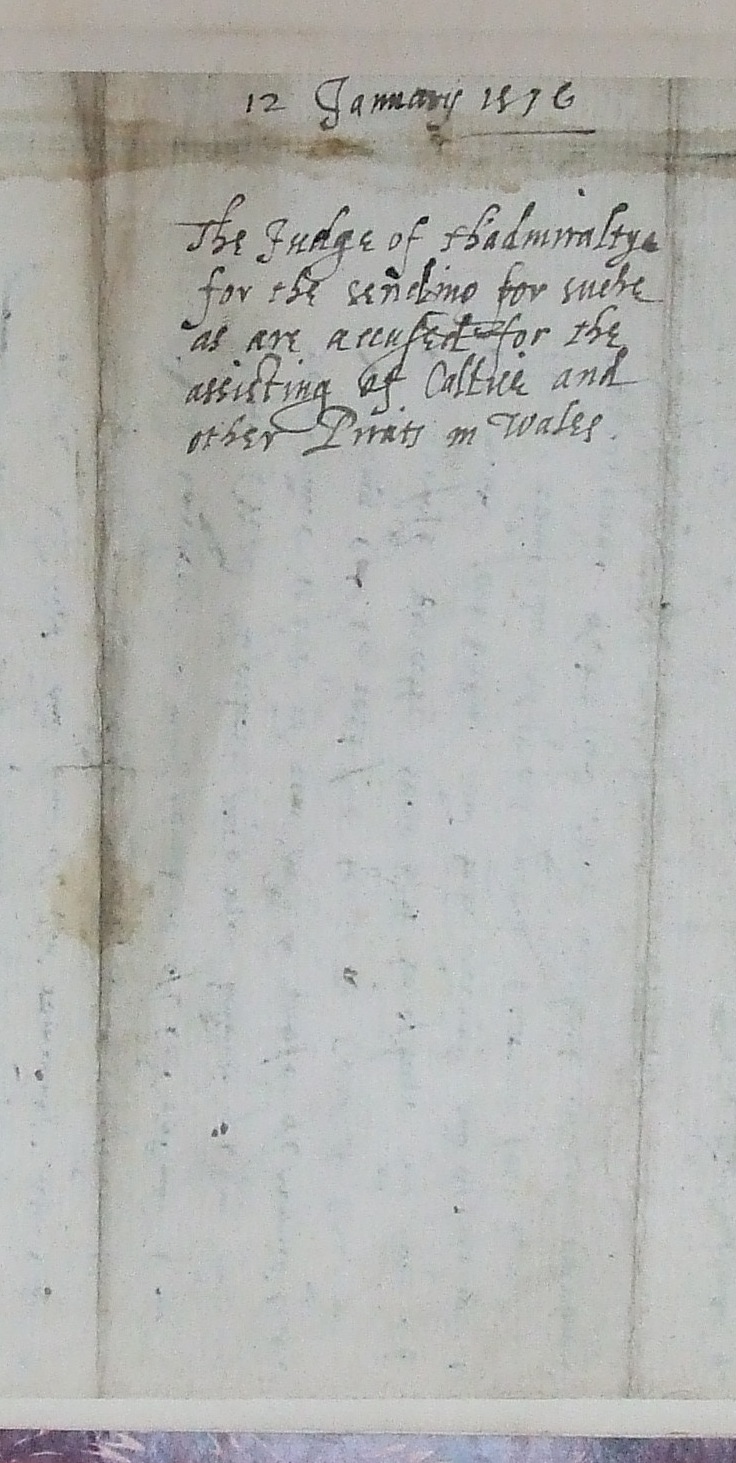 12 January 1576
The Judge of th'admiraltye
for the sending for suche
as are accused for the
assisting of Caltice and
other Pirats in Wales.